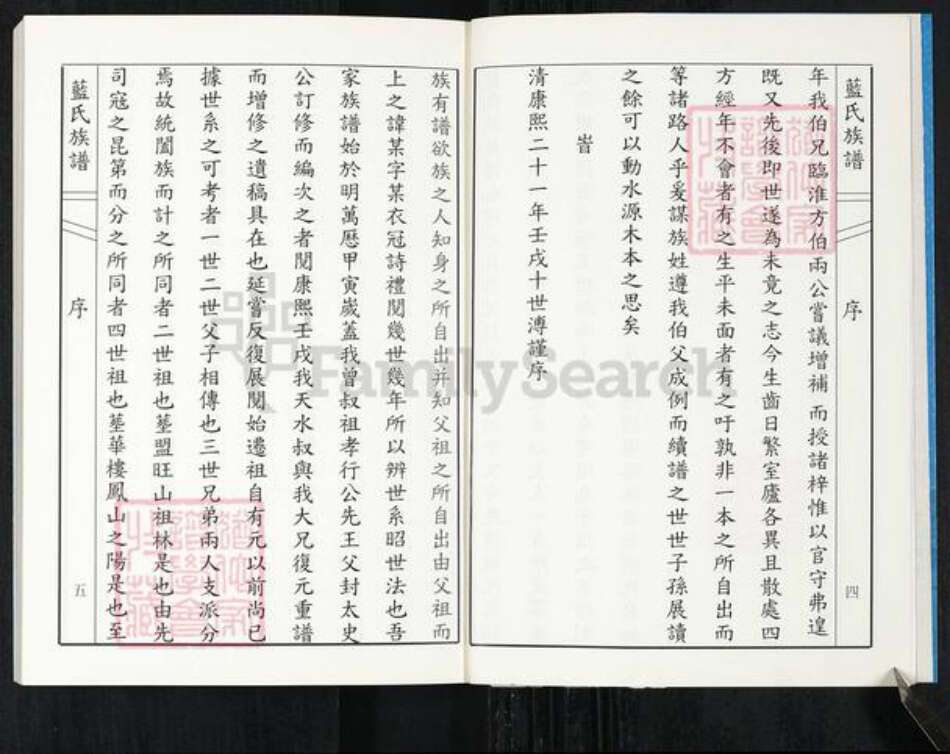 藍氏族譜
序
四
年我伯兄臨淮方伯兩公嘗議增補而授諸梓惟以官守弗遑
既又先後即世遂為未竟之志今生齒日繁室廬各異且散處四
方經年不會者有之生平未面者有之吁孰非一本之所自出而
等諸路人乎爰謀族姓遵我伯父成例而續譜之世世子孫展讀
之餘可以動水源木本之思矣
旹
清康熙二十一年壬戌十世溥謹序
族有譜欲族之人知身之所自出并知父祖之所自出由父祖而
上之諱某字某衣冠詩禮閱幾世幾年所以辨世系昭世法也吾
家族譜始於明萬曆甲寅歲蓋我曾叔祖孝行公先王父封太史
公訂修而編次之者閱康熙壬戌我天水叔與我大兄復元重譜
而增修之遺稿具在也延嘗反復展閱始遷祖自有元以前尚已
據世系之可考者一世二世父子相傳也三世兄弟兩人支派分
焉故統闔族而計之所同者二世祖也塋盟旺山祖林是也由先
司寇之昆第而分之所同者四世祖也塋華樓鳳山之陽是也至
藍氏族譜
序
五
FamilySearch